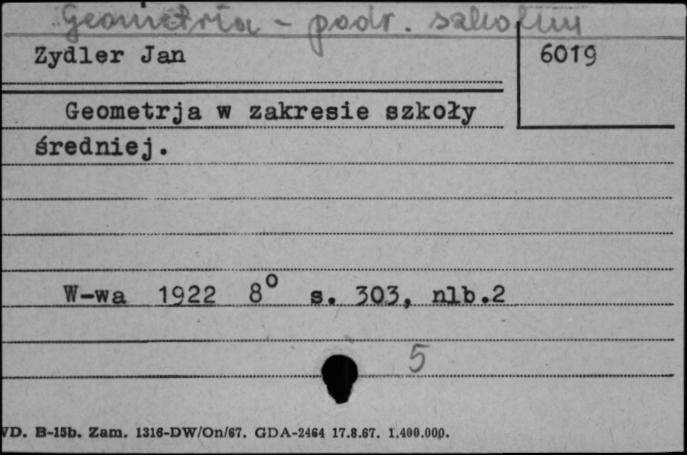 Geometria - podr. szkolny
Zydler Jan
6019
Geometrja w zakresie szkoły
średniej.
W-wa 1922 8° s. 303, nlb.2
5
VD. B-15b. Zam. 1316-DW/On/67. GDA-2464 17.8.67. 1.400.000.